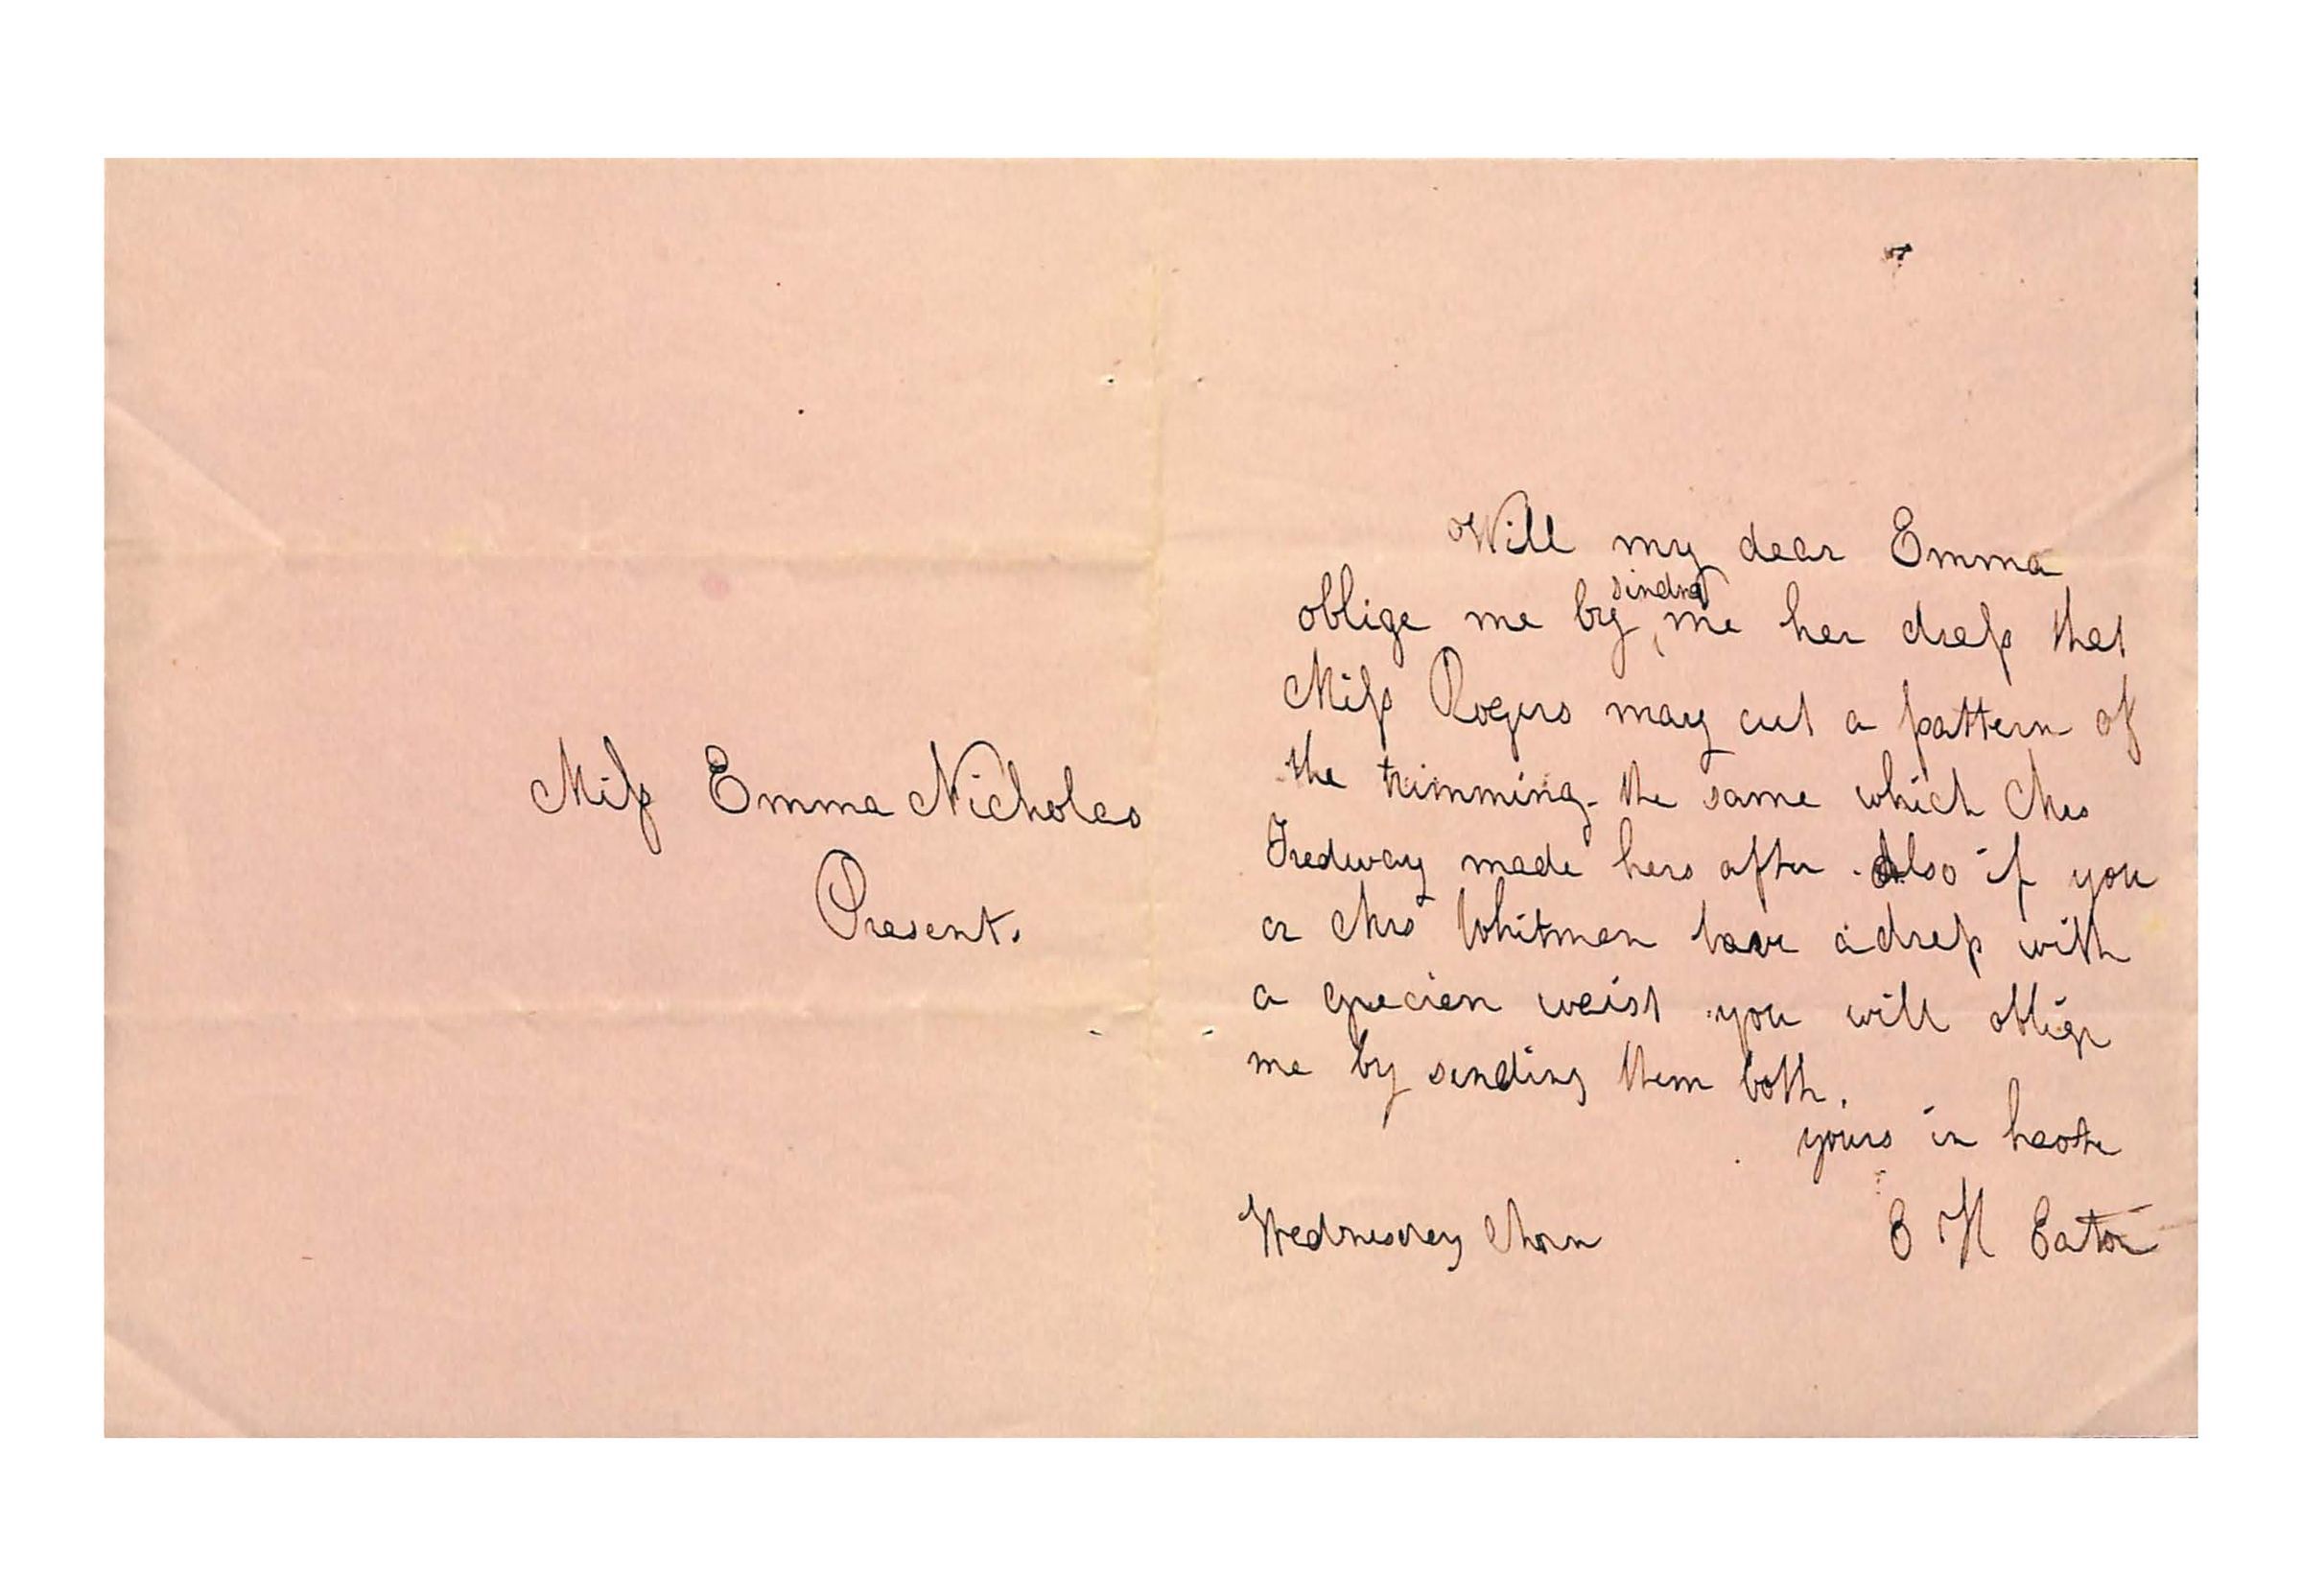 Miss Emma Nicholas
Present.
Will my dear Emma
oblige me by sending me her dress that
Miss Rogers may cut a pattern of
the trimming - the same which Mrs
Tredway made hers after. Also if you
or Mrs Whitman have a dress with
a grecian waist you will oblige
me by sending them both.
yours in haste
Wednesday Morn
E H Eaton